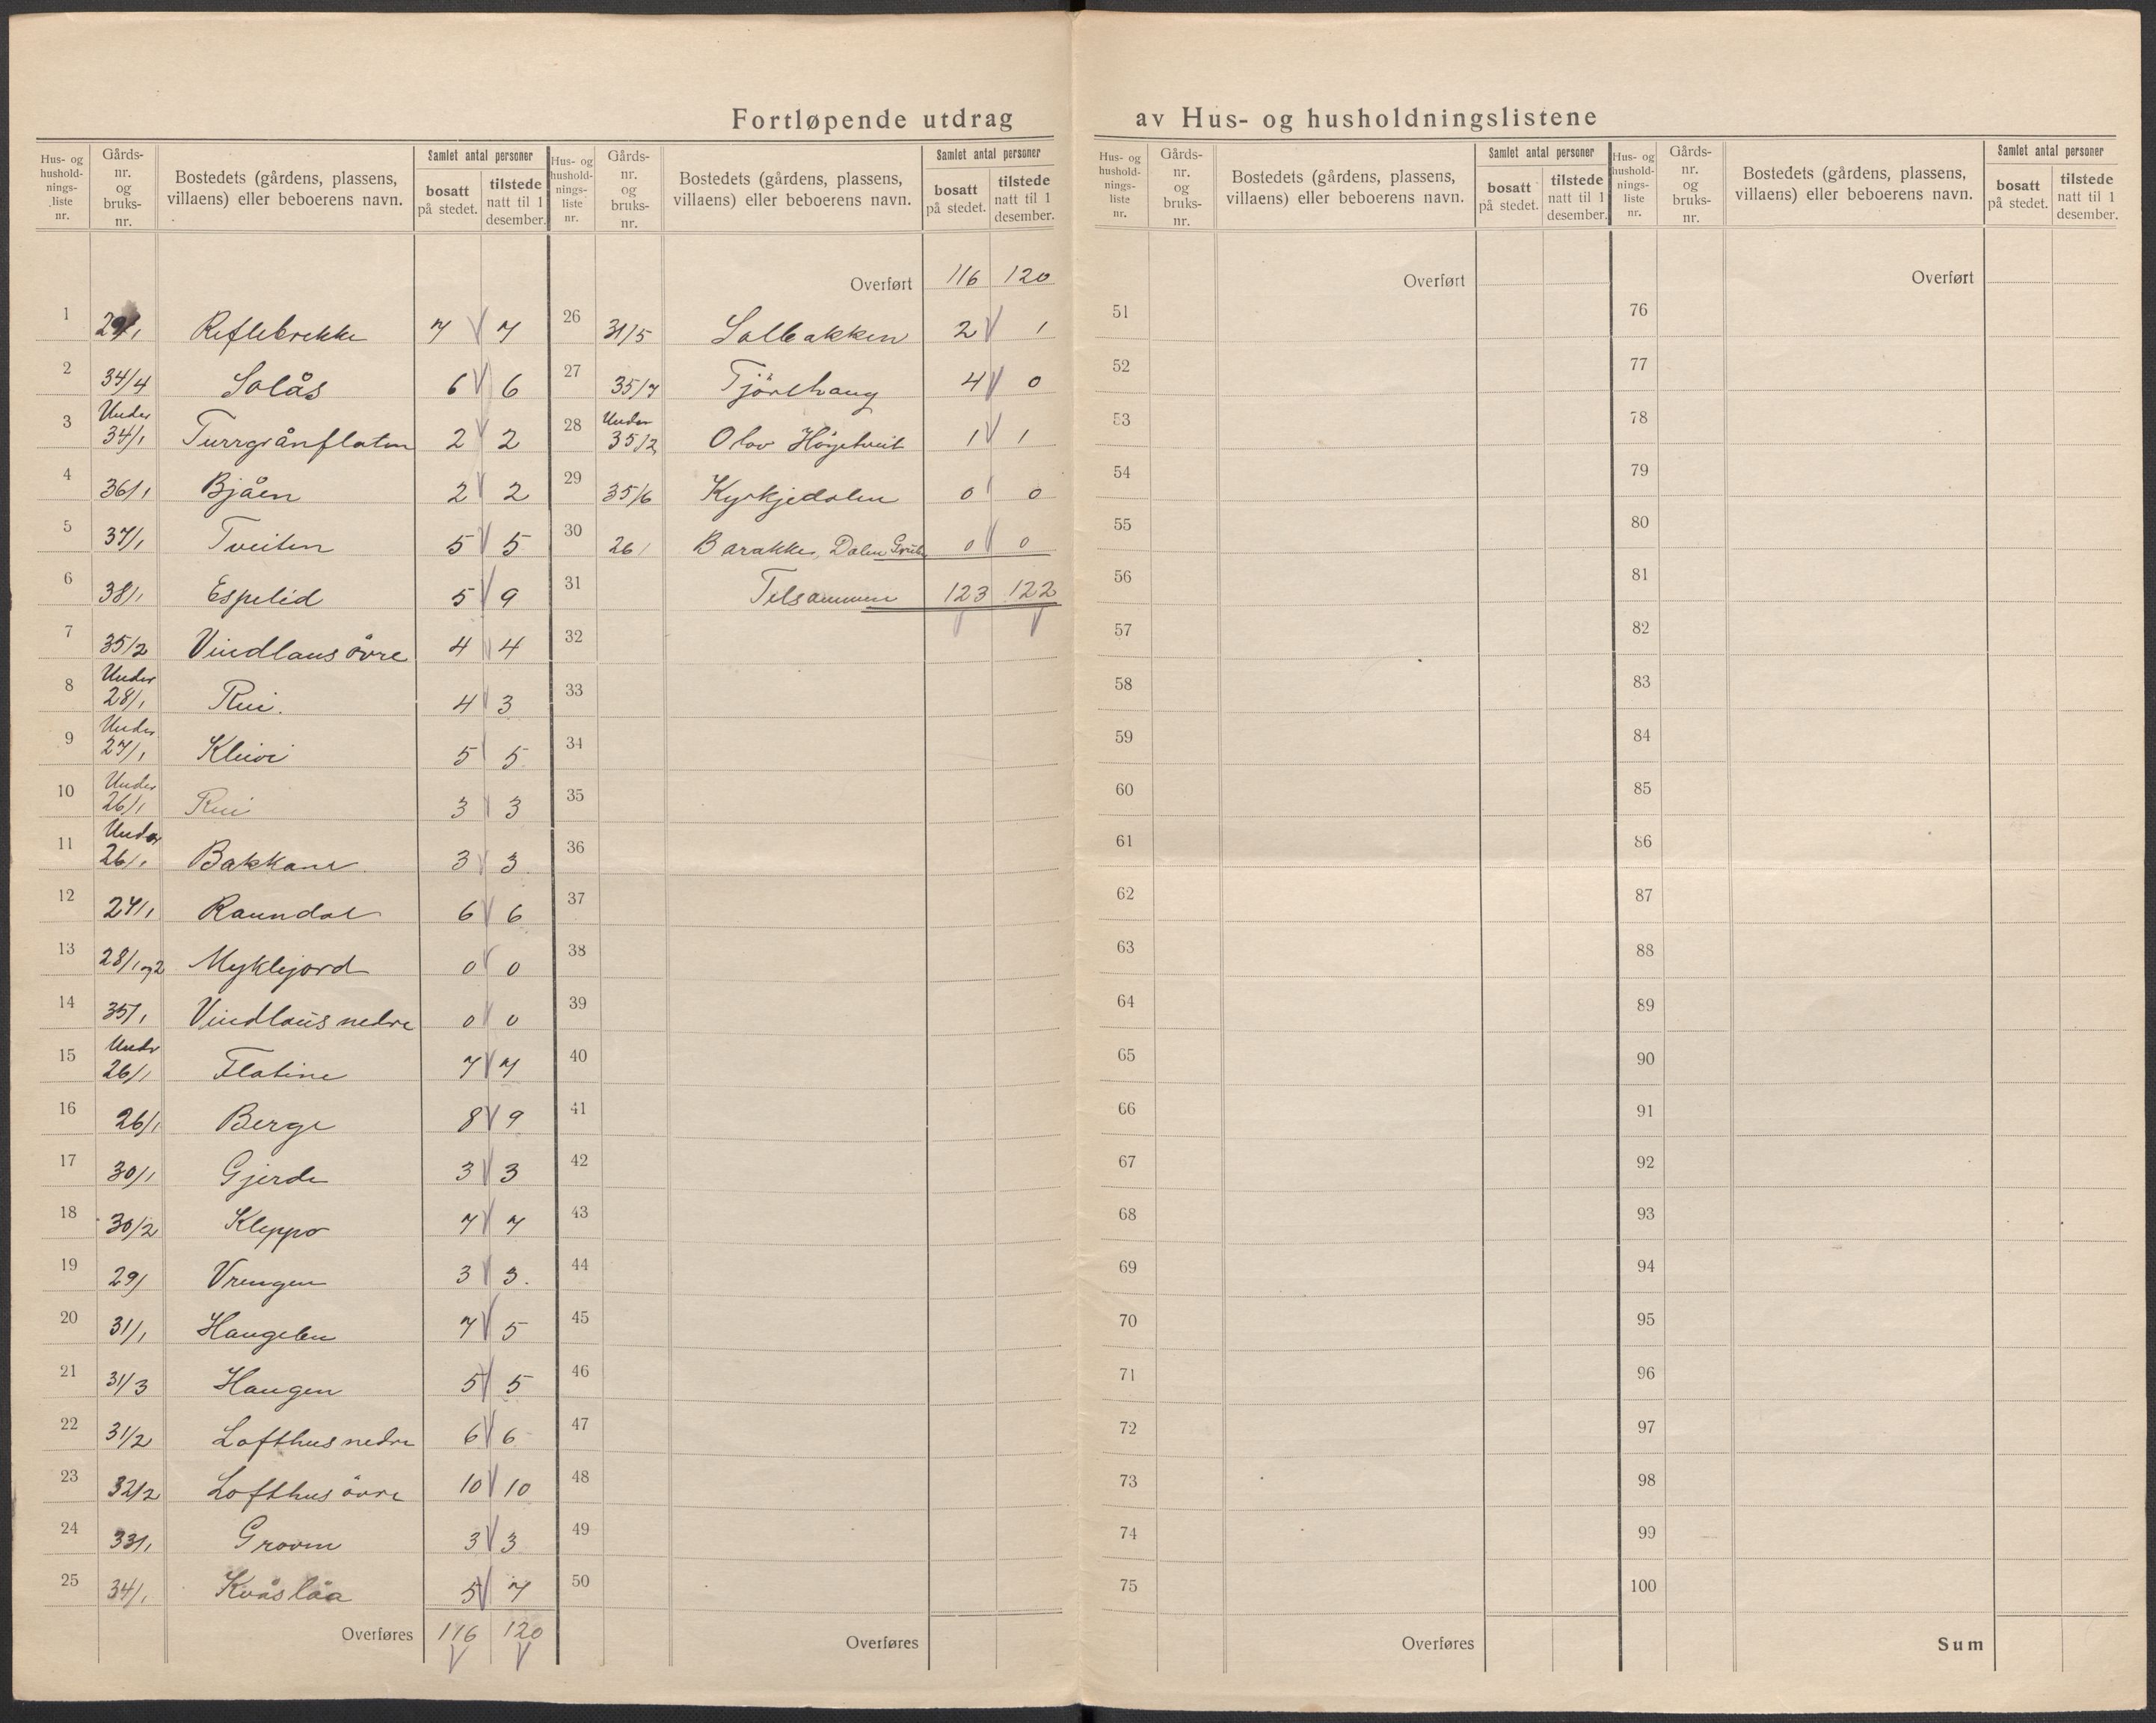 Fortløpende utdrag av Hus- og husholdningslistene
Hus- og hushold-nings-liste nr. Gårds-nr. og bruks-nr. Bostedets (gårdens, plassens, villaens) eller beboerens navn. Samlet antal personer bosatt på stedet. tilstede natt til 1 desember.
1 29/1 Reflebrekke 7 7
2 34/4 Solås 6 6
3 Under 34/1 Turrgrånflaten 2 2
4 36/1 Bjåen 2 2
5 37/1 Tveiten 5 5
6 38/1 Espelid 5 9
7 35/2 Vindlaus øvre 4 4
8 Under 28/1 Rui. 4 3
9 Under 27/1 Kleivi 5 5
10 Under 26/1 Rui 3 3
11 Under 26/1 Bakkane 3 3
12 27/1 Raundal 6 6
13 28/1 og 2 Myklejord 0 0
14 35/1 Vindlaus nedre 0 0
15 Under 26/1 Flatine 7 7
16 26/1 Berge 8 9
17 30/1 Gjerde 3 3
18 30/2 Kleppo 7 7
19 29/ Vrengen 3 3.
20 31/1 Haugelen 7 5
21 31/3 Haugen 5 5
22 31/2 Lofthus nedre 6 6
23 32/2 Lofthus øvre 10 10
24 33/1 Groven 3 3
25 34/1 Kvåslåa 5 7
Overføres 116 120
Hus- og hushold-nings-liste nr. Gårds-nr. og bruks-nr. Bostedets (gårdens, plassens, villaens) eller beboerens navn. Samlet antal personer bosatt på stedet. tilstede natt til 1 desember.
Overført 116 120
26 31/5 Solbakken 2 1
27 35/7 Tjönlhaug 4 0
28 Under 35/2 Olav Høgetveit 1 1
29 35/6 Kyrkjedalen 0 0
30 26/ Barakke, Dalen Grube 0 0
31 Tilsammen 123 122
32
33
34
35
36
37
38
39
40
41
42
43
44
45
46
47
48
49
50
Overføres
Hus- og hushold-nings-liste nr. Gårds-nr. og bruks-nr. Bostedets (gårdens, plassens, villaens) eller beboerens navn. Samlet antal personer bosatt på stedet. tilstede natt til 1 desember.
Overført
51
52
53
54
55
56
57
58
59
60
61
62
63
64
65
66
67
68
69
70
71
72
73
74
75
Overføres
Hus- og hushold-nings-liste nr. Gårds-nr. og bruks-nr. Bostedets (gårdens, plassens, villaens) eller beboerens navn. Samlet antal personer bosatt på stedet. tilstede natt til 1 desember.
Overført
76
77
78
79
80
81
82
83
84
85
86
87
88
89
90
91
92
93
94
95
96
97
98
99
100
Sum